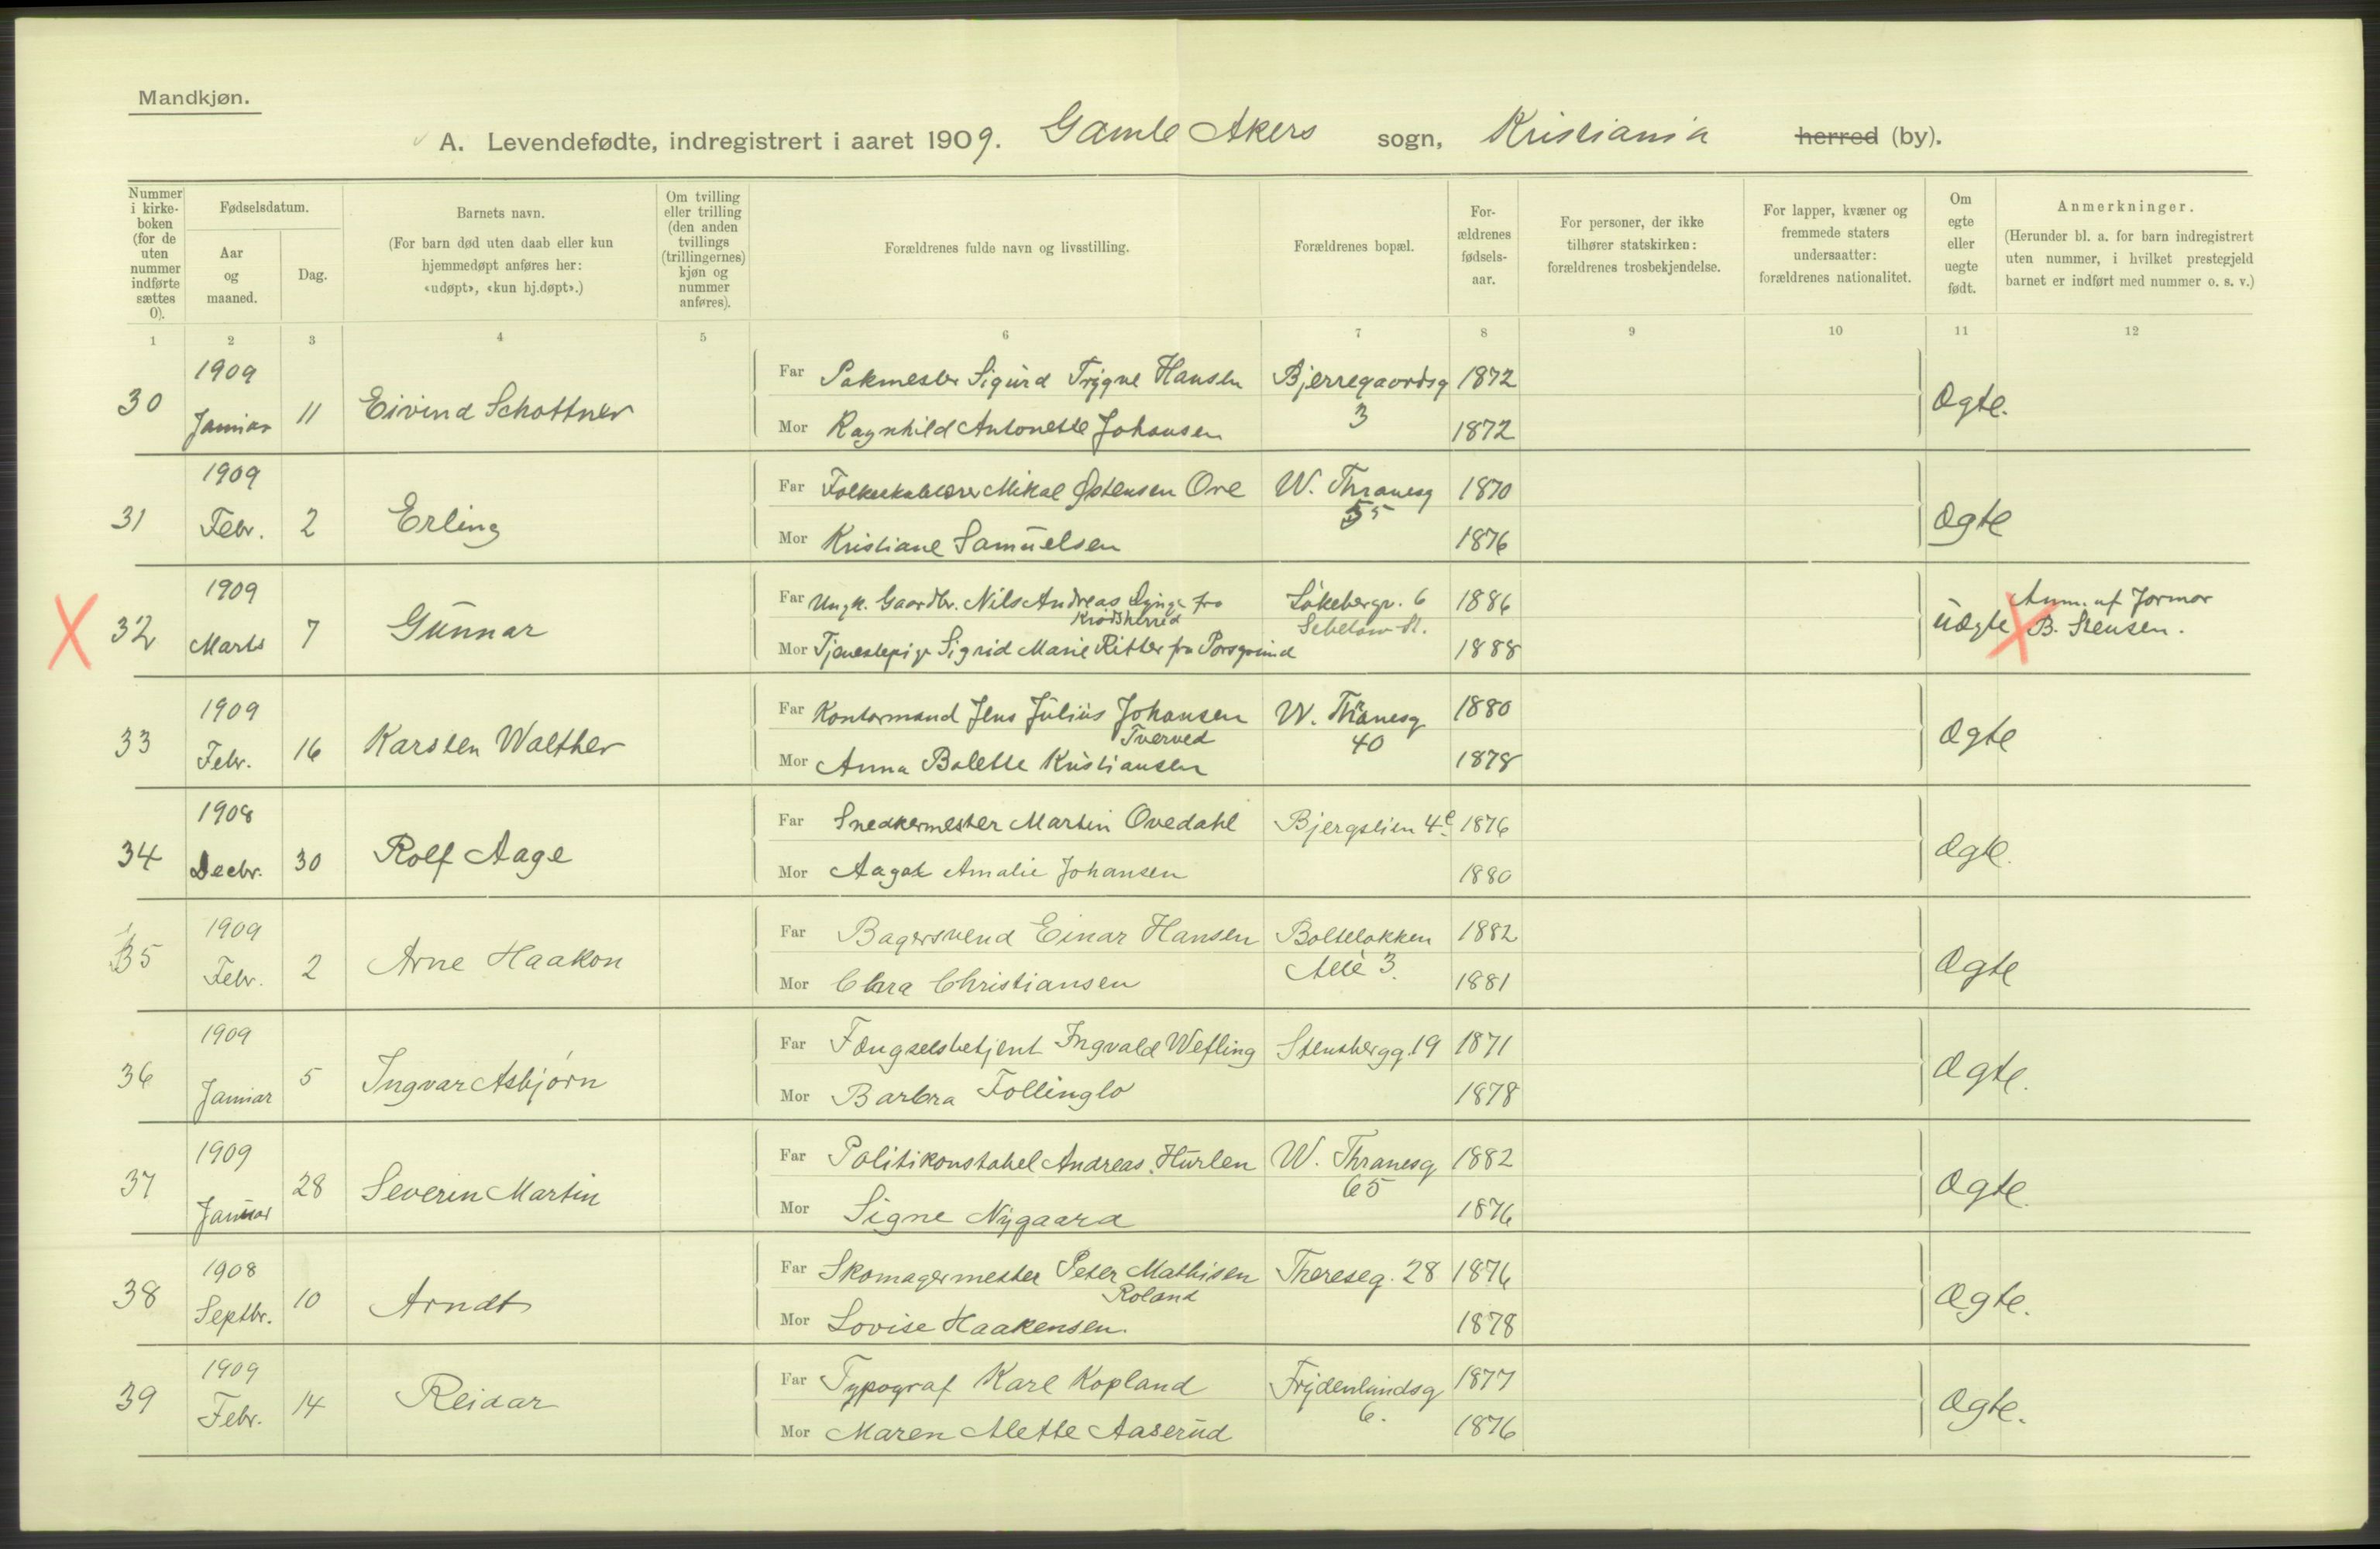 Mandkjøn.
A. Levendefødte, indregistrert i aaret 1909. Gamle Akers sogn, Kristiania herred (by).
Nummer i kirke-boken (for de uten nummer indførte sættes 0).
Fødselsdatum.
Aar og maaned.
Dag.
Barnets navn.
(For barn død uten daab eller kun hjemmedøpt anføres her: «udøpt», «kun hj.døpt».)
Om tvilling eller trilling (den anden tvillings (trillingernes) kjøn og nummer anføres).
Forældrenes fulde navn og livsstilling.
Forældrenes bopæl.
For-ældrenes fødsels-aar.
For personer, der ikke tilhører statskirken: forældrenes trosbekjendelse.
For lapper, kvæner og fremmede staters undersaatter: forældrenes nationalitet.
Om egte eller uegte født.
Anmerkninger.
(Herunder bl. a. for barn indregistrert uten nummer, i hvilket prestegjeld barnet er indført med nummer o. s. v.)
1 2 3 4 5 6 7 8 9 10 11 12
30 1909 Januar 11 Eivind Schottner
Far Pakmester Sigurd Trygve Hansen Bjerregaardsg 3 1872 Ægte.
Mor Ragnhild Antonette Johansen 1872
31 1909 Febr. 2 Erling
Far Folkeskolelærer Mikal Østensen Ove W. Thranesg 55 1870 Ægte
Mor Kristiane Samuelsen 1876
X 32 1909 Marts 7 Gunnar
Far Ungk. Gaardbr. Nils Andreas fra Krødsherred 6 1886 Uægte Anm. af Jormor B. Stensen.
Mor Tjenestepige Sigrid Marie Ritter fra Porsgrund 1888
33 1909 Febr. 16 Karsten Walther
Far Kontormand Jens Julius Johansen Tverved W. Thranesg 40 1880 Ægte
Mor Anna Balette Kristiansen 1878
34 1908 Decbr. 30 Rolf Aage
Far Snedkermester Martin Ovedahl Bjergslien 4 1876 Ægte.
Mor Aagot Amalie Johansen 1880
35 1909 Febr. 2 Arne Haakon
Far Bagersvend Einar Hansen Bolteløkken Allè 3. 1882 Ægte
Mor Clara Christiansen 1881
36 1909 Januar 5 Ingvar Asbjørn
Far Fængselsbetjent Ingvald Wefling Stensbergg. 19 1871 Ægte.
Mor Barbra Follinglo 1878
37 1909 Januar 28 Severin Martin
Far Politikonstabel Andreas Hurlen W. Thranesg 65 1882 Ægte.
Mor Signe Nygaard 1876
38 1908 Septbr. 10 Arndt
Far Skomagermester Peter Mathisen Roland Thereseg. 28 1876 Ægte.
Mor Lovise Haakensen. 1878
39 1909 Febr. 14 Reidar
Far Typograf Karl Kopland Frydenlundsg 6. 1877 Ægte.
Mor Maren Mette Aaserud 1876